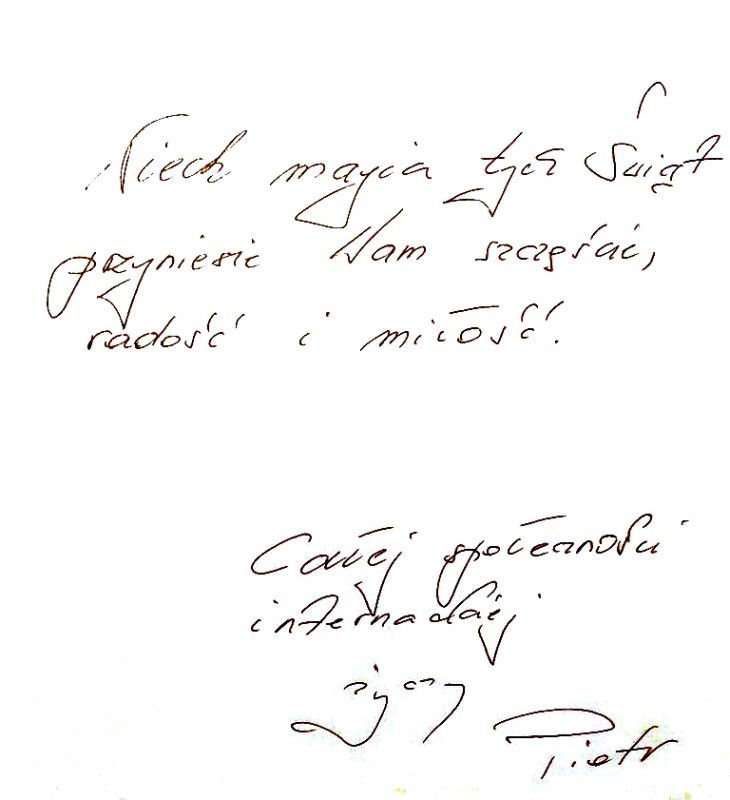 Niech magia tych Świąt
przyniesie Wam szczęście,
radość i miłość.
Całej społeczności
życzy
Piotr